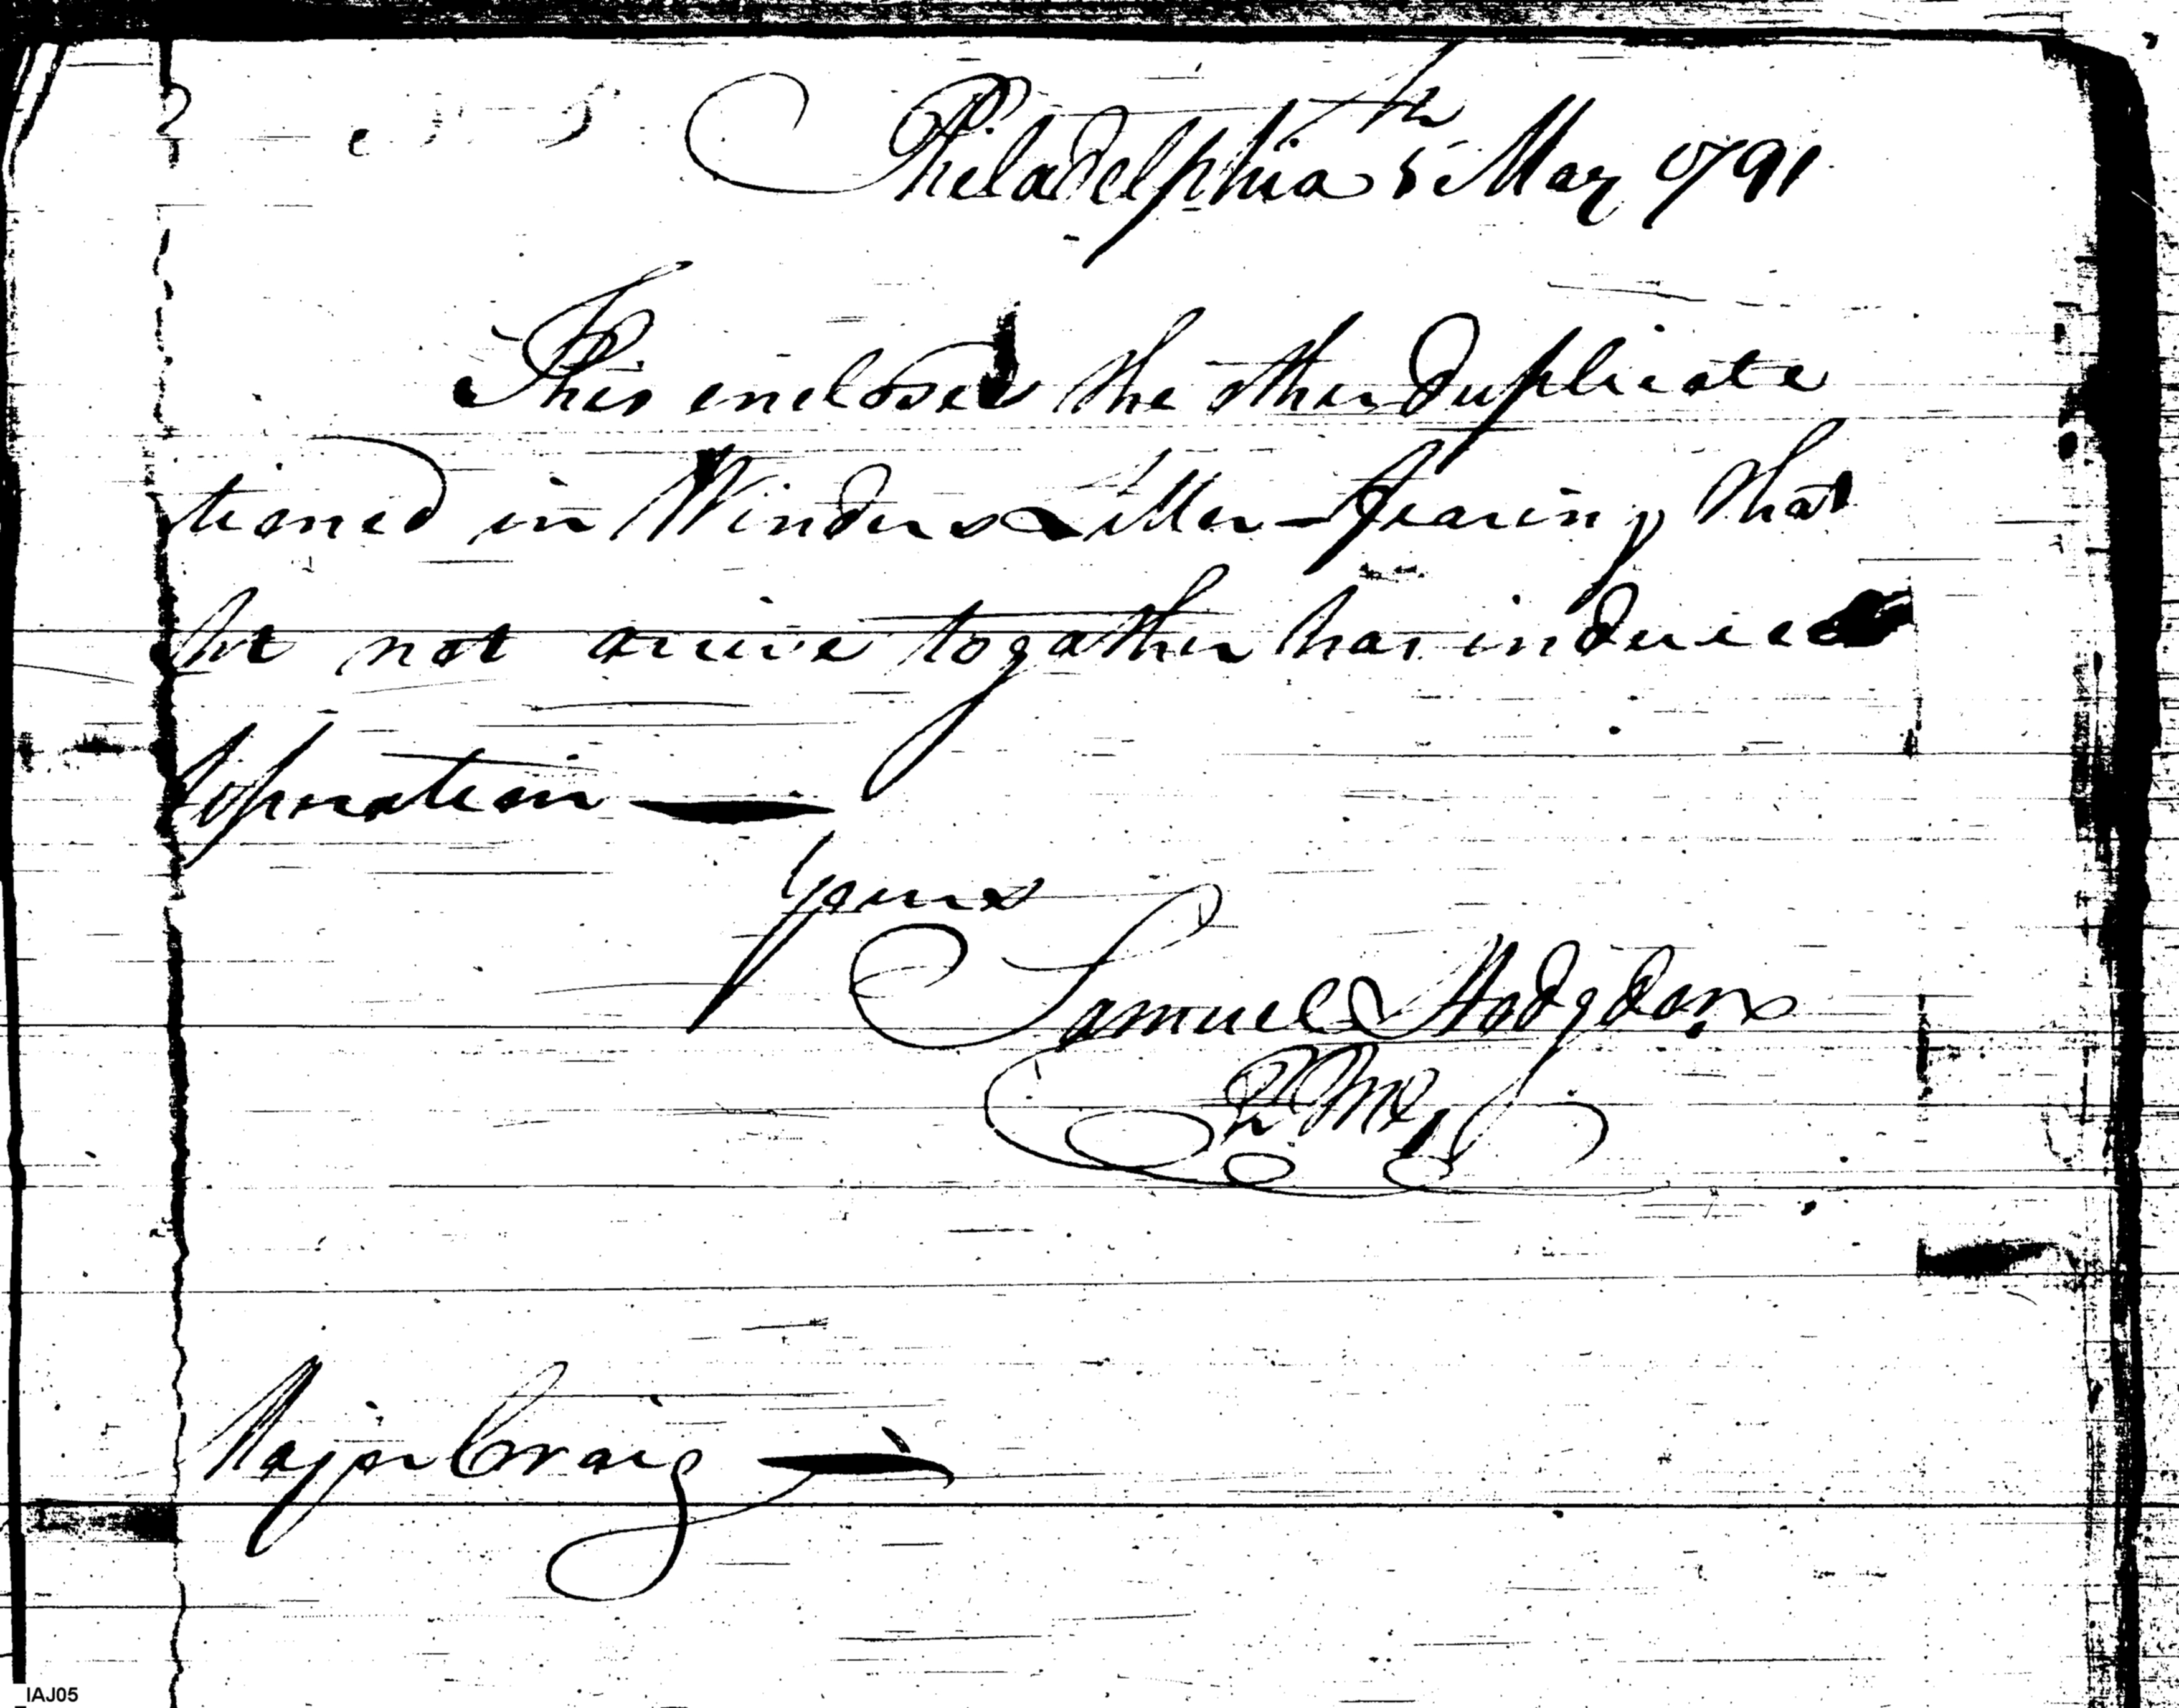 Philadelphia 5th May 1791
This encloses the other duplicate
tioned in Winders Letter – fearing that
ht not arrive togather has induced
operation —
Yours
Samuel Hodgdon
QM
Major Craig —
IAJ05